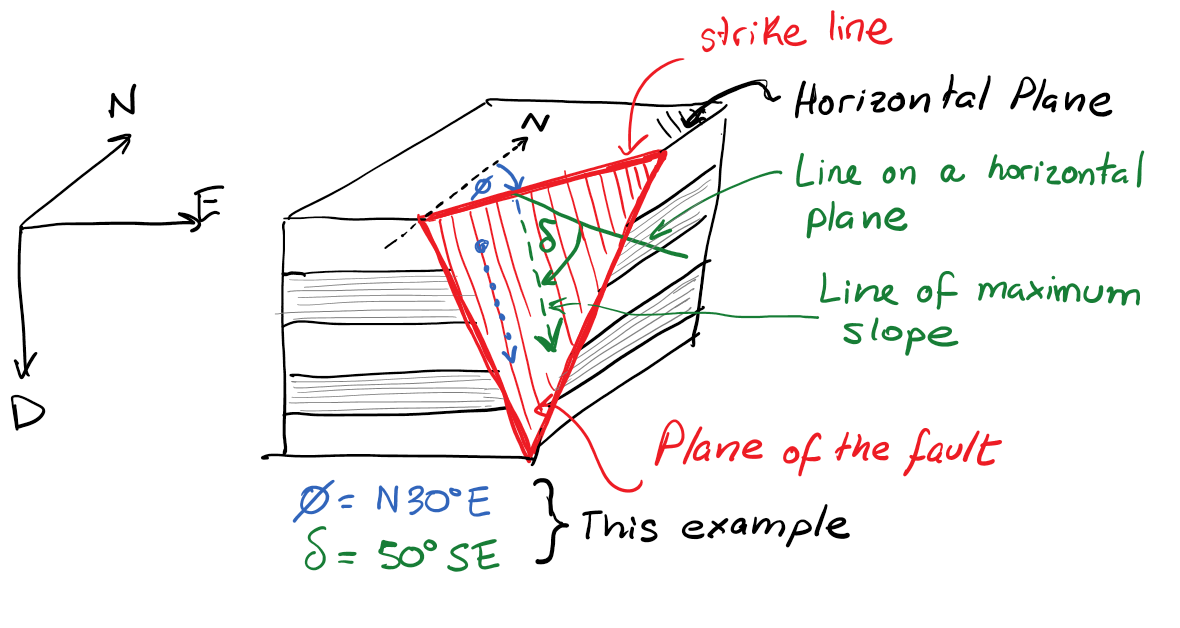 strike line
N
Horizontal Plane
N
Line on a horizontal
plane
E
ϕ
δ
Line of maximum
slope
D
Plane of the fault
ϕ = N30°E
δ = 50° SE
This example